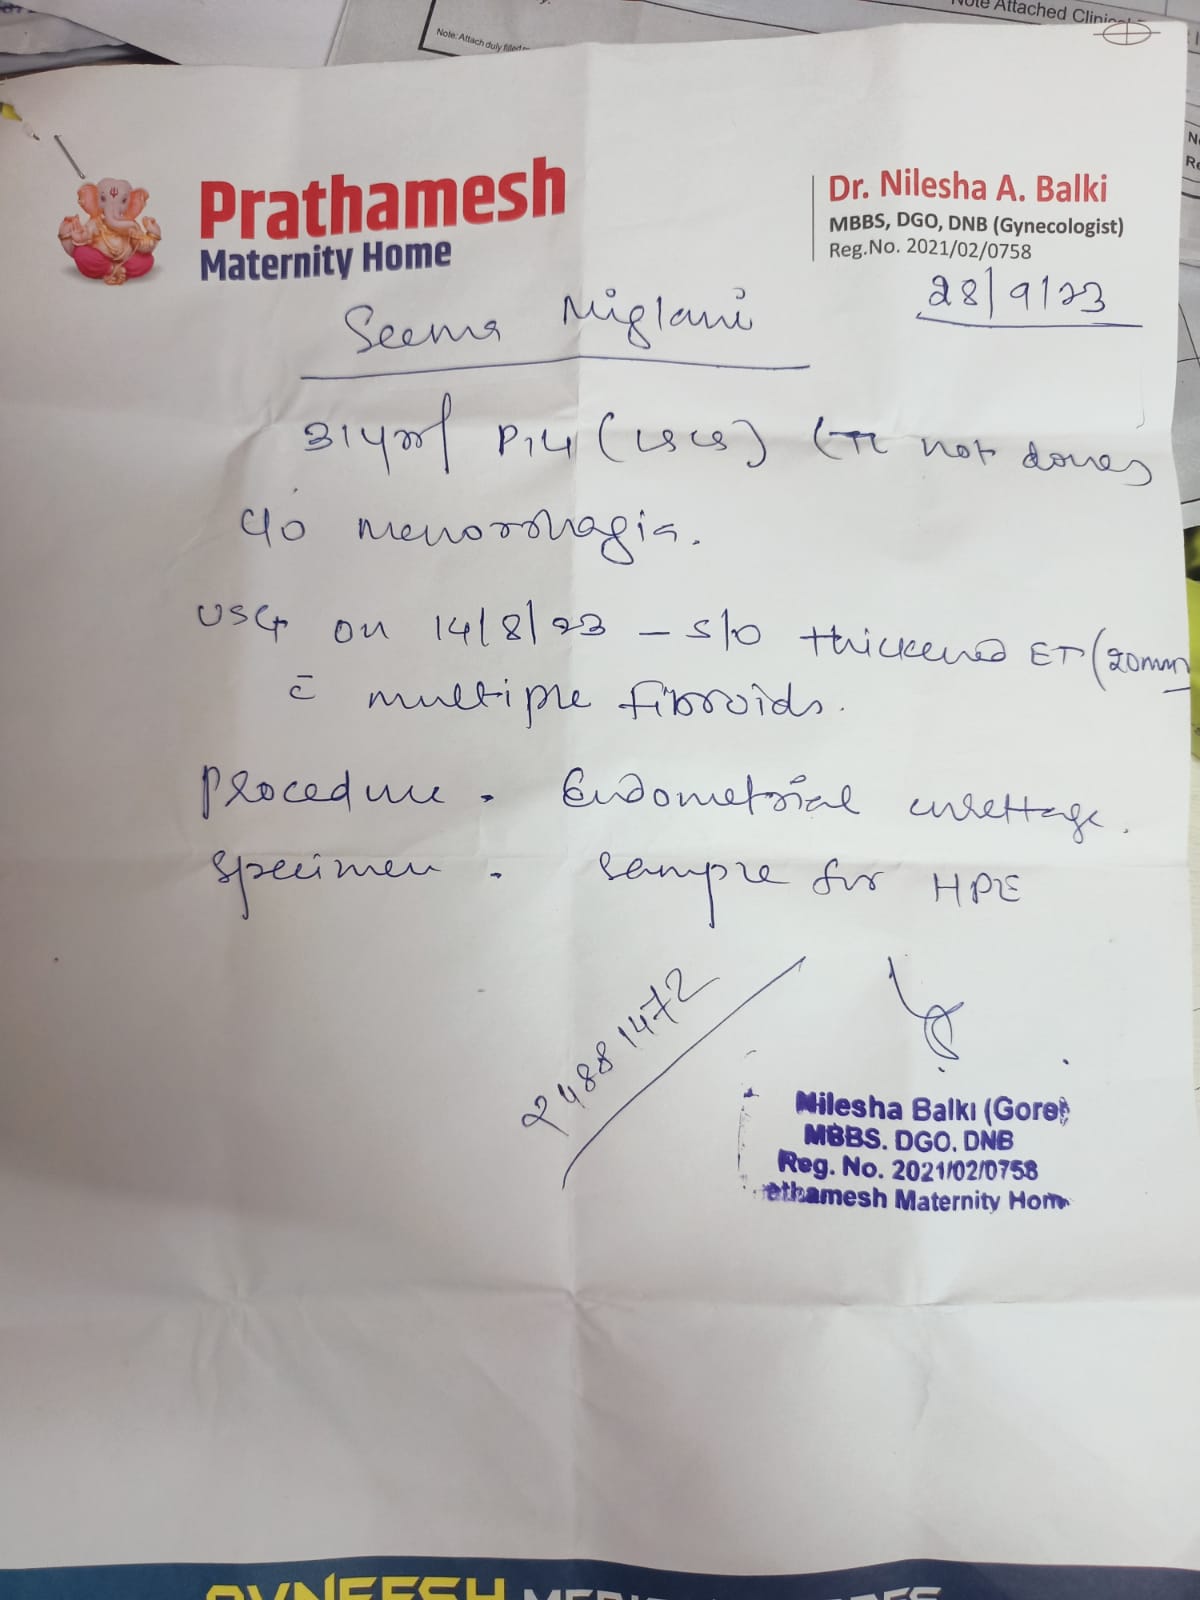 Note Attached Clinical
Note: Attach duly filled
Prathamesh
Maternity Home
Dr. Nilesha A. Balki
MBBS, DGO, DNB (Gynecologist)
Reg.No. 2021/02/0758
28/9/23
Seema Miglani
31yrs/ P1L1 (LSCS) (TL not done)
c/o menorrhagia.
USG on 14/8/23 - s/o thickened ET (20mm
c̄ multiple fibroids.
Procedure - Endometrial curettage.
Specimen - Sample for HPE
24881472
Nilesha Balki (Gore)
MBBS. DGO. DNB
Reg. No. 2021/02/0758
athamesh Maternity Hom
AVNEESH